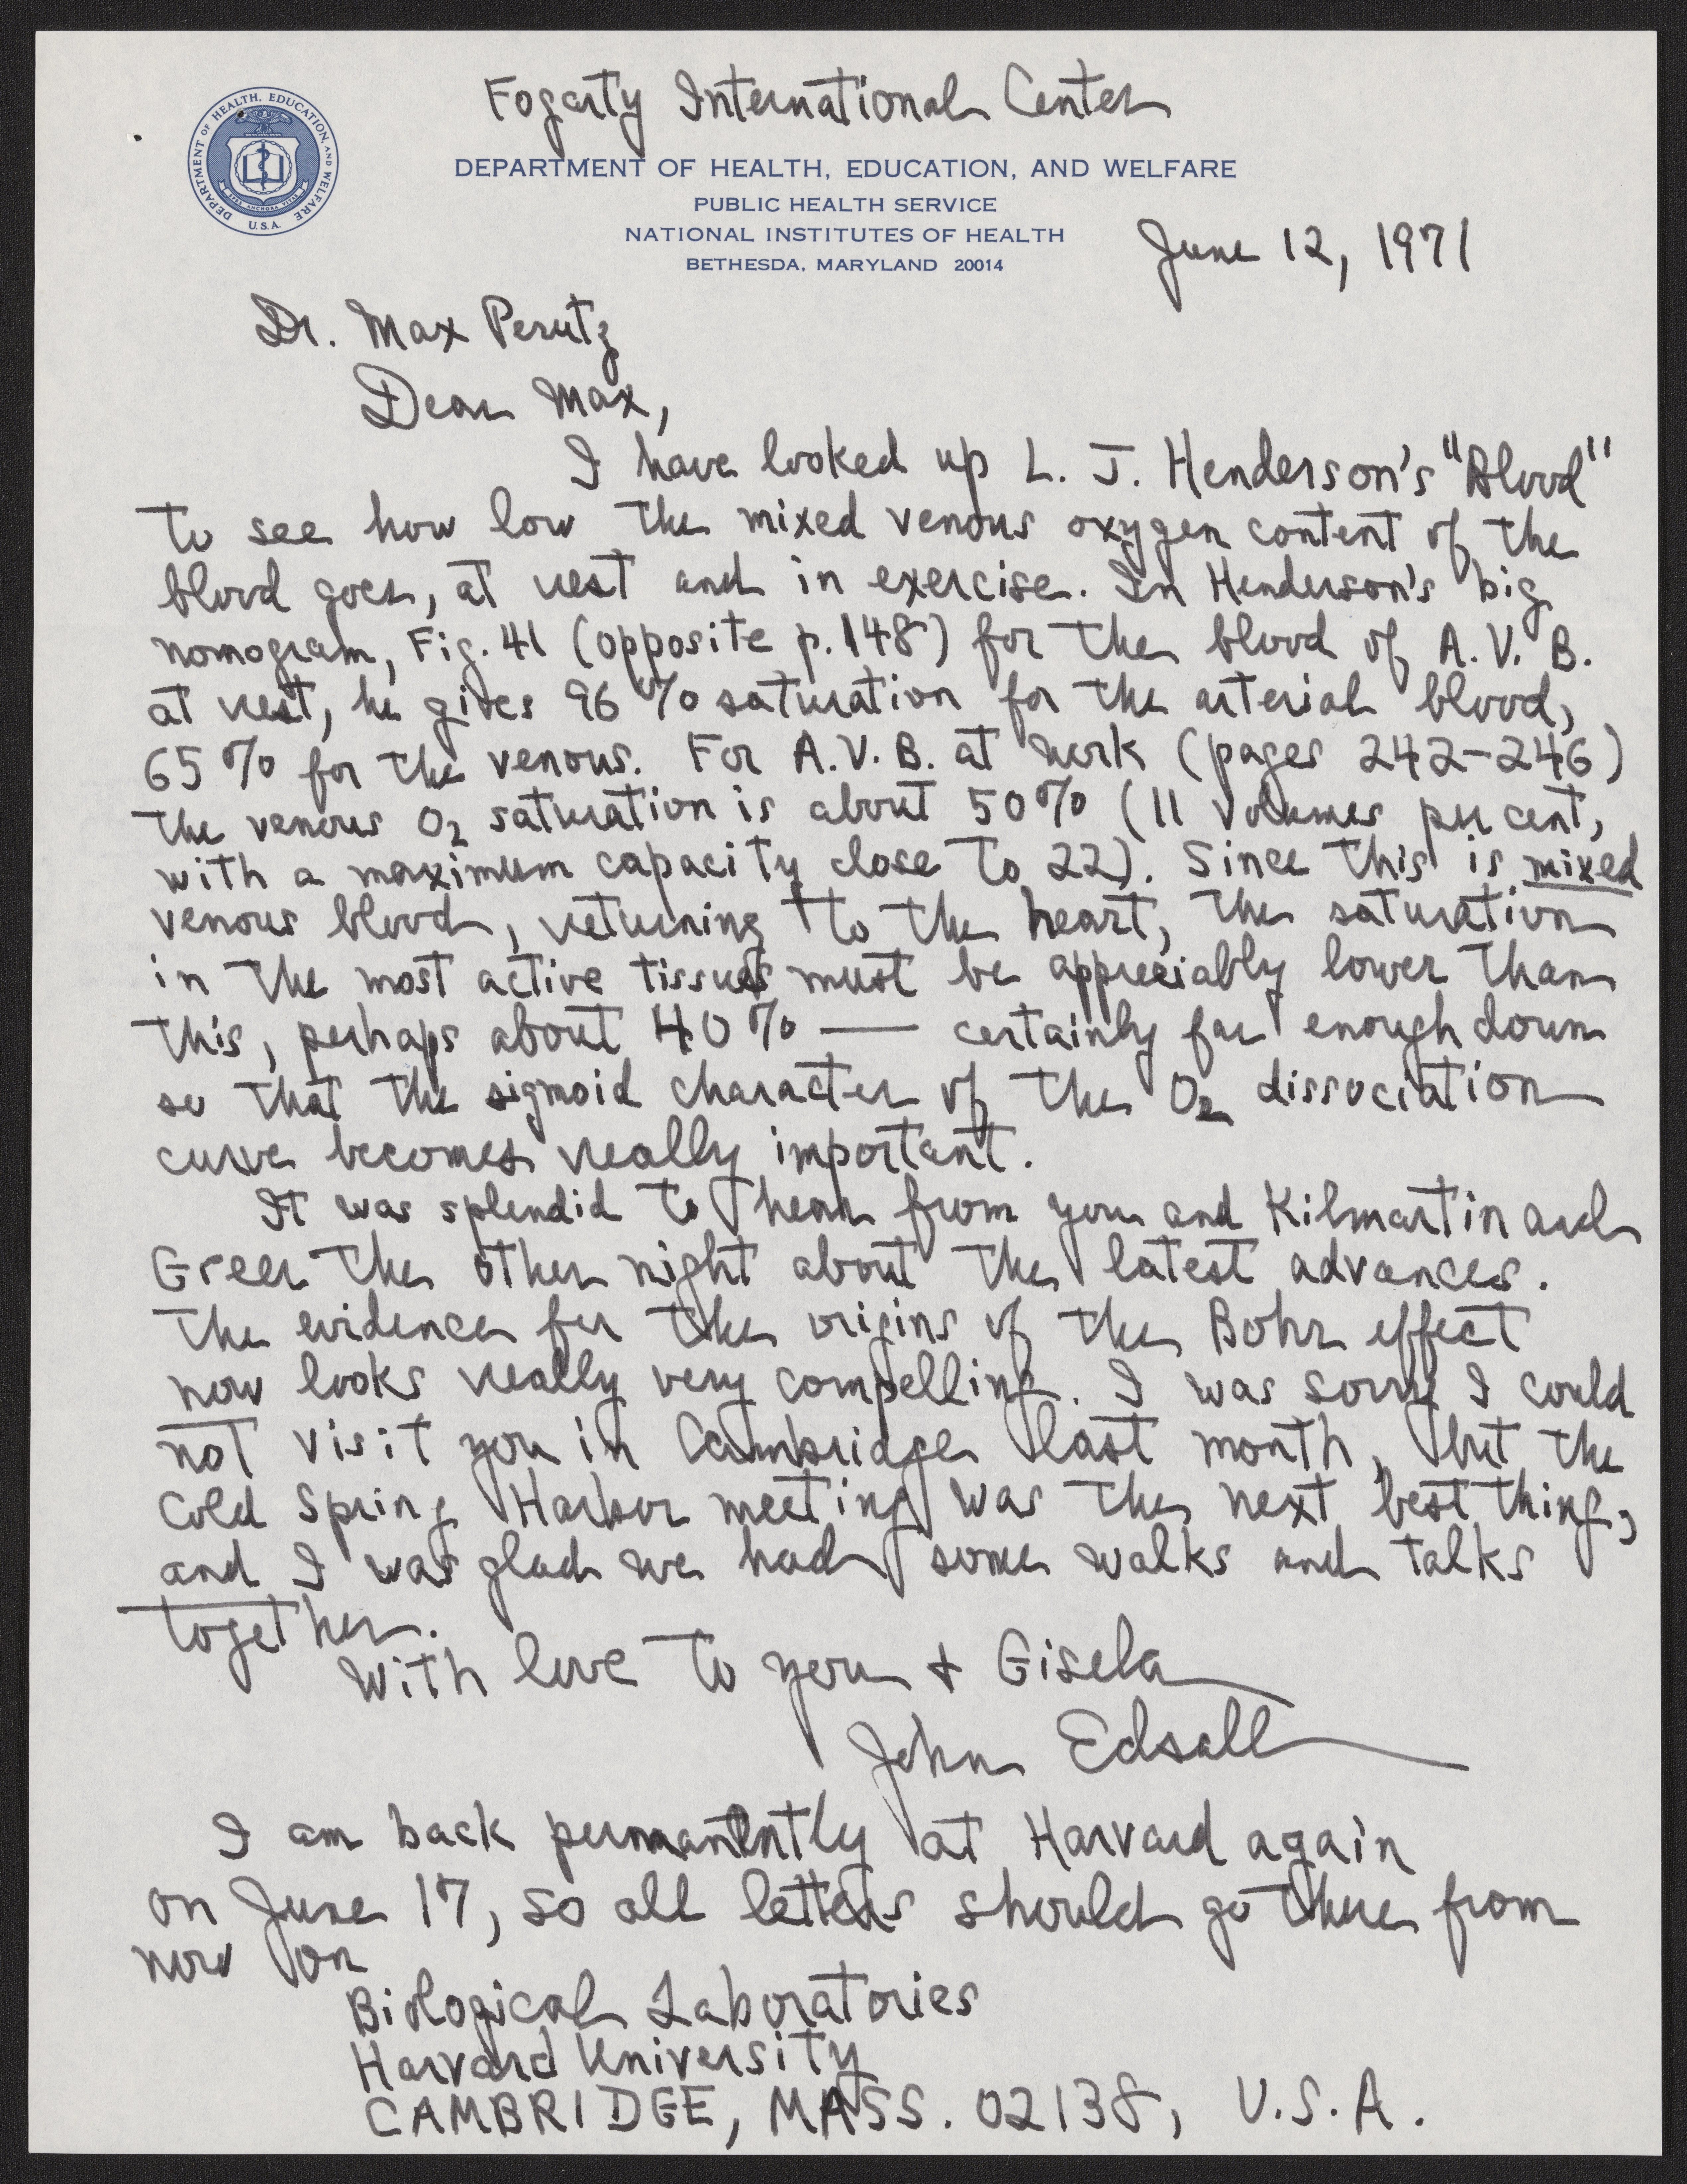 Fogarty International Center
DEPARTMENT OF HEALTH, EDUCATION, AND WELFARE
DEPARTMENT OF HEALTH, EDUCATION, AND WELFARE
U.S.A.
PUBLIC HEALTH SERVICE
NATIONAL INSTITUTES OF HEALTH
BETHESDA, MARYLAND 20014
June 12, 1971
Dr. Max Perutz
Dear Max,
I have looked up L. J. Henderson's "Blood"
to see how low the mixed venous oxygen content of the
blood goes, at rest and in exercise. In Henderson's big
nomogram, Fig. 41 (opposite p. 148) for the blood of A. V. B.
at rest, he gives 96 % saturation for the arterial blood,
65 % for the venous. For A. V. B. at work (pages 242-246)
the venous O2 saturation is about 50 % (11 volumes per cent,
with a maximum capacity close to 22). Since this is mixed
venous blood, returning to the heart, the saturation
in the most active tissues must be appreciably lower than
this, perhaps about 40 % — certainly far enough down
so that the sigmoid character of the O2 dissociation
curve becomes really important.
It was splendid to hear from you and Kilmartin and
Greer the other night about the latest advances.
The evidence for the origins of the Bohr effect
now looks really very compelling. I was sorry I could
not visit you in Cambridge last month, but the
Cold Spring Harbor meeting was the next best thing,
and I was glad we had some walks and talks
together.
With love to you + Gisela
John Edsall
I am back permanently at Harvard again
on June 17, so all letters should go there from
now on
Biological Laboratories
Harvard University
CAMBRIDGE, MASS. 02138, U.S.A.